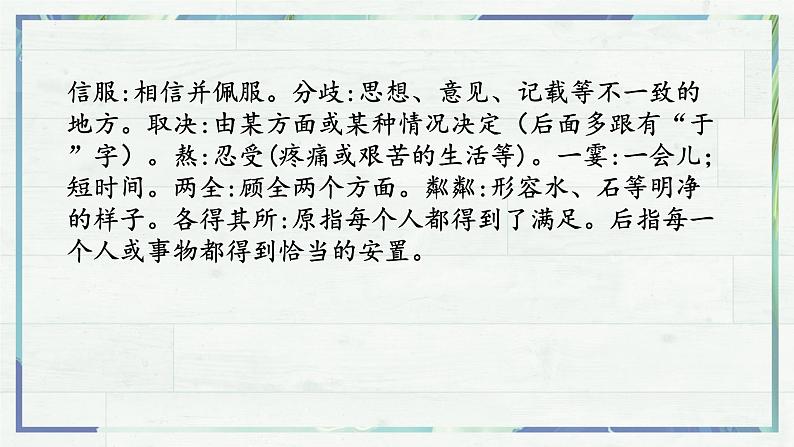 信服:相信并佩服。分歧:思想、意见、记载等不一致的
地方。取决:由某方面或某种情况决定（后面多跟有“于
”字）。熬:忍受(疼痛或艰苦的生活等)。一霎:一会儿;
短时间。两全:顾全两个方面。粼粼:形容水、石等明净
的样子。各得其所:原指每个人都得到了满足。后指每一
个人或事物都得到恰当的安置。